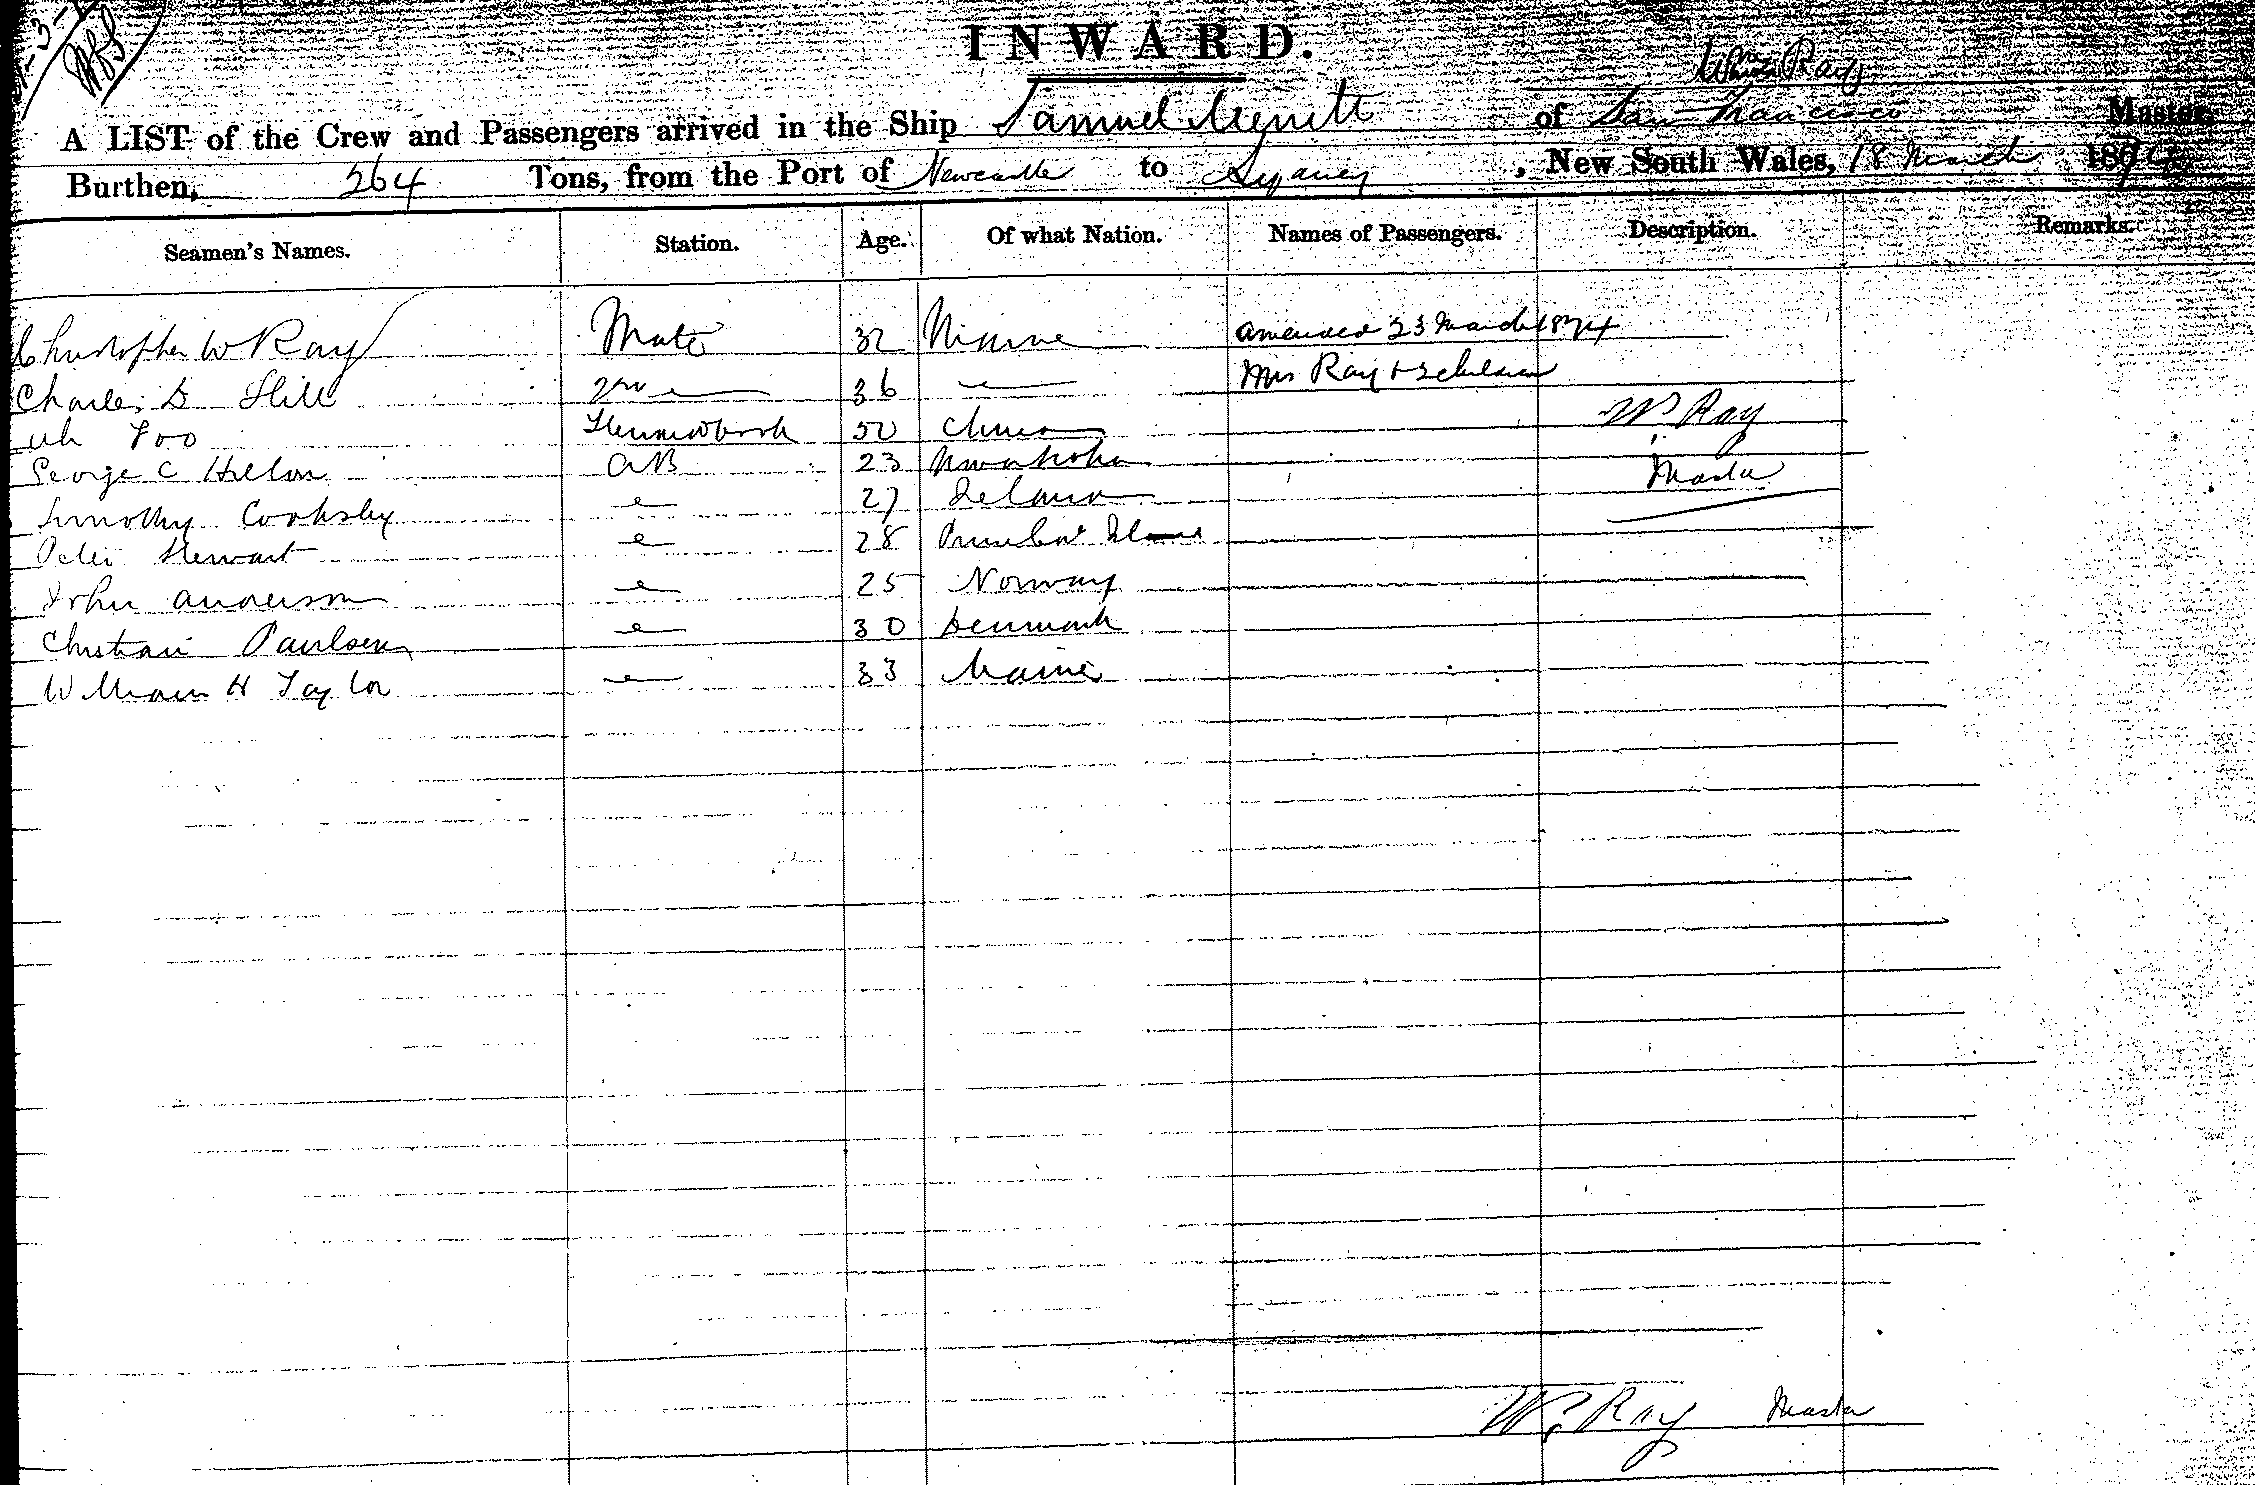 INWARD.
Wm Ray
A LIST of the Crew and Passengers arrived in the Ship Samuel Merritt of San Francisco Master,
Burthen, 564 Tons, from the Port of Newcastle to Sydney, New South Wales, 18 March 187
Seamen's Names. Station. Age. Of what Nation. Names of Passengers. Description. Remarks.
Christopher W Ray Mate 32 amended 23 March 1874
Charles D 2nd 36 Mrs Ray &
Ah Foo 50 China W. Ray
George C AB 23 Master
Timothy Cooksley 27
Peter Stewart 28
John Anderson 25 Norway
Christian Paulsen 30 Denmark
William H Taylor 33 Maine
W. Ray Master